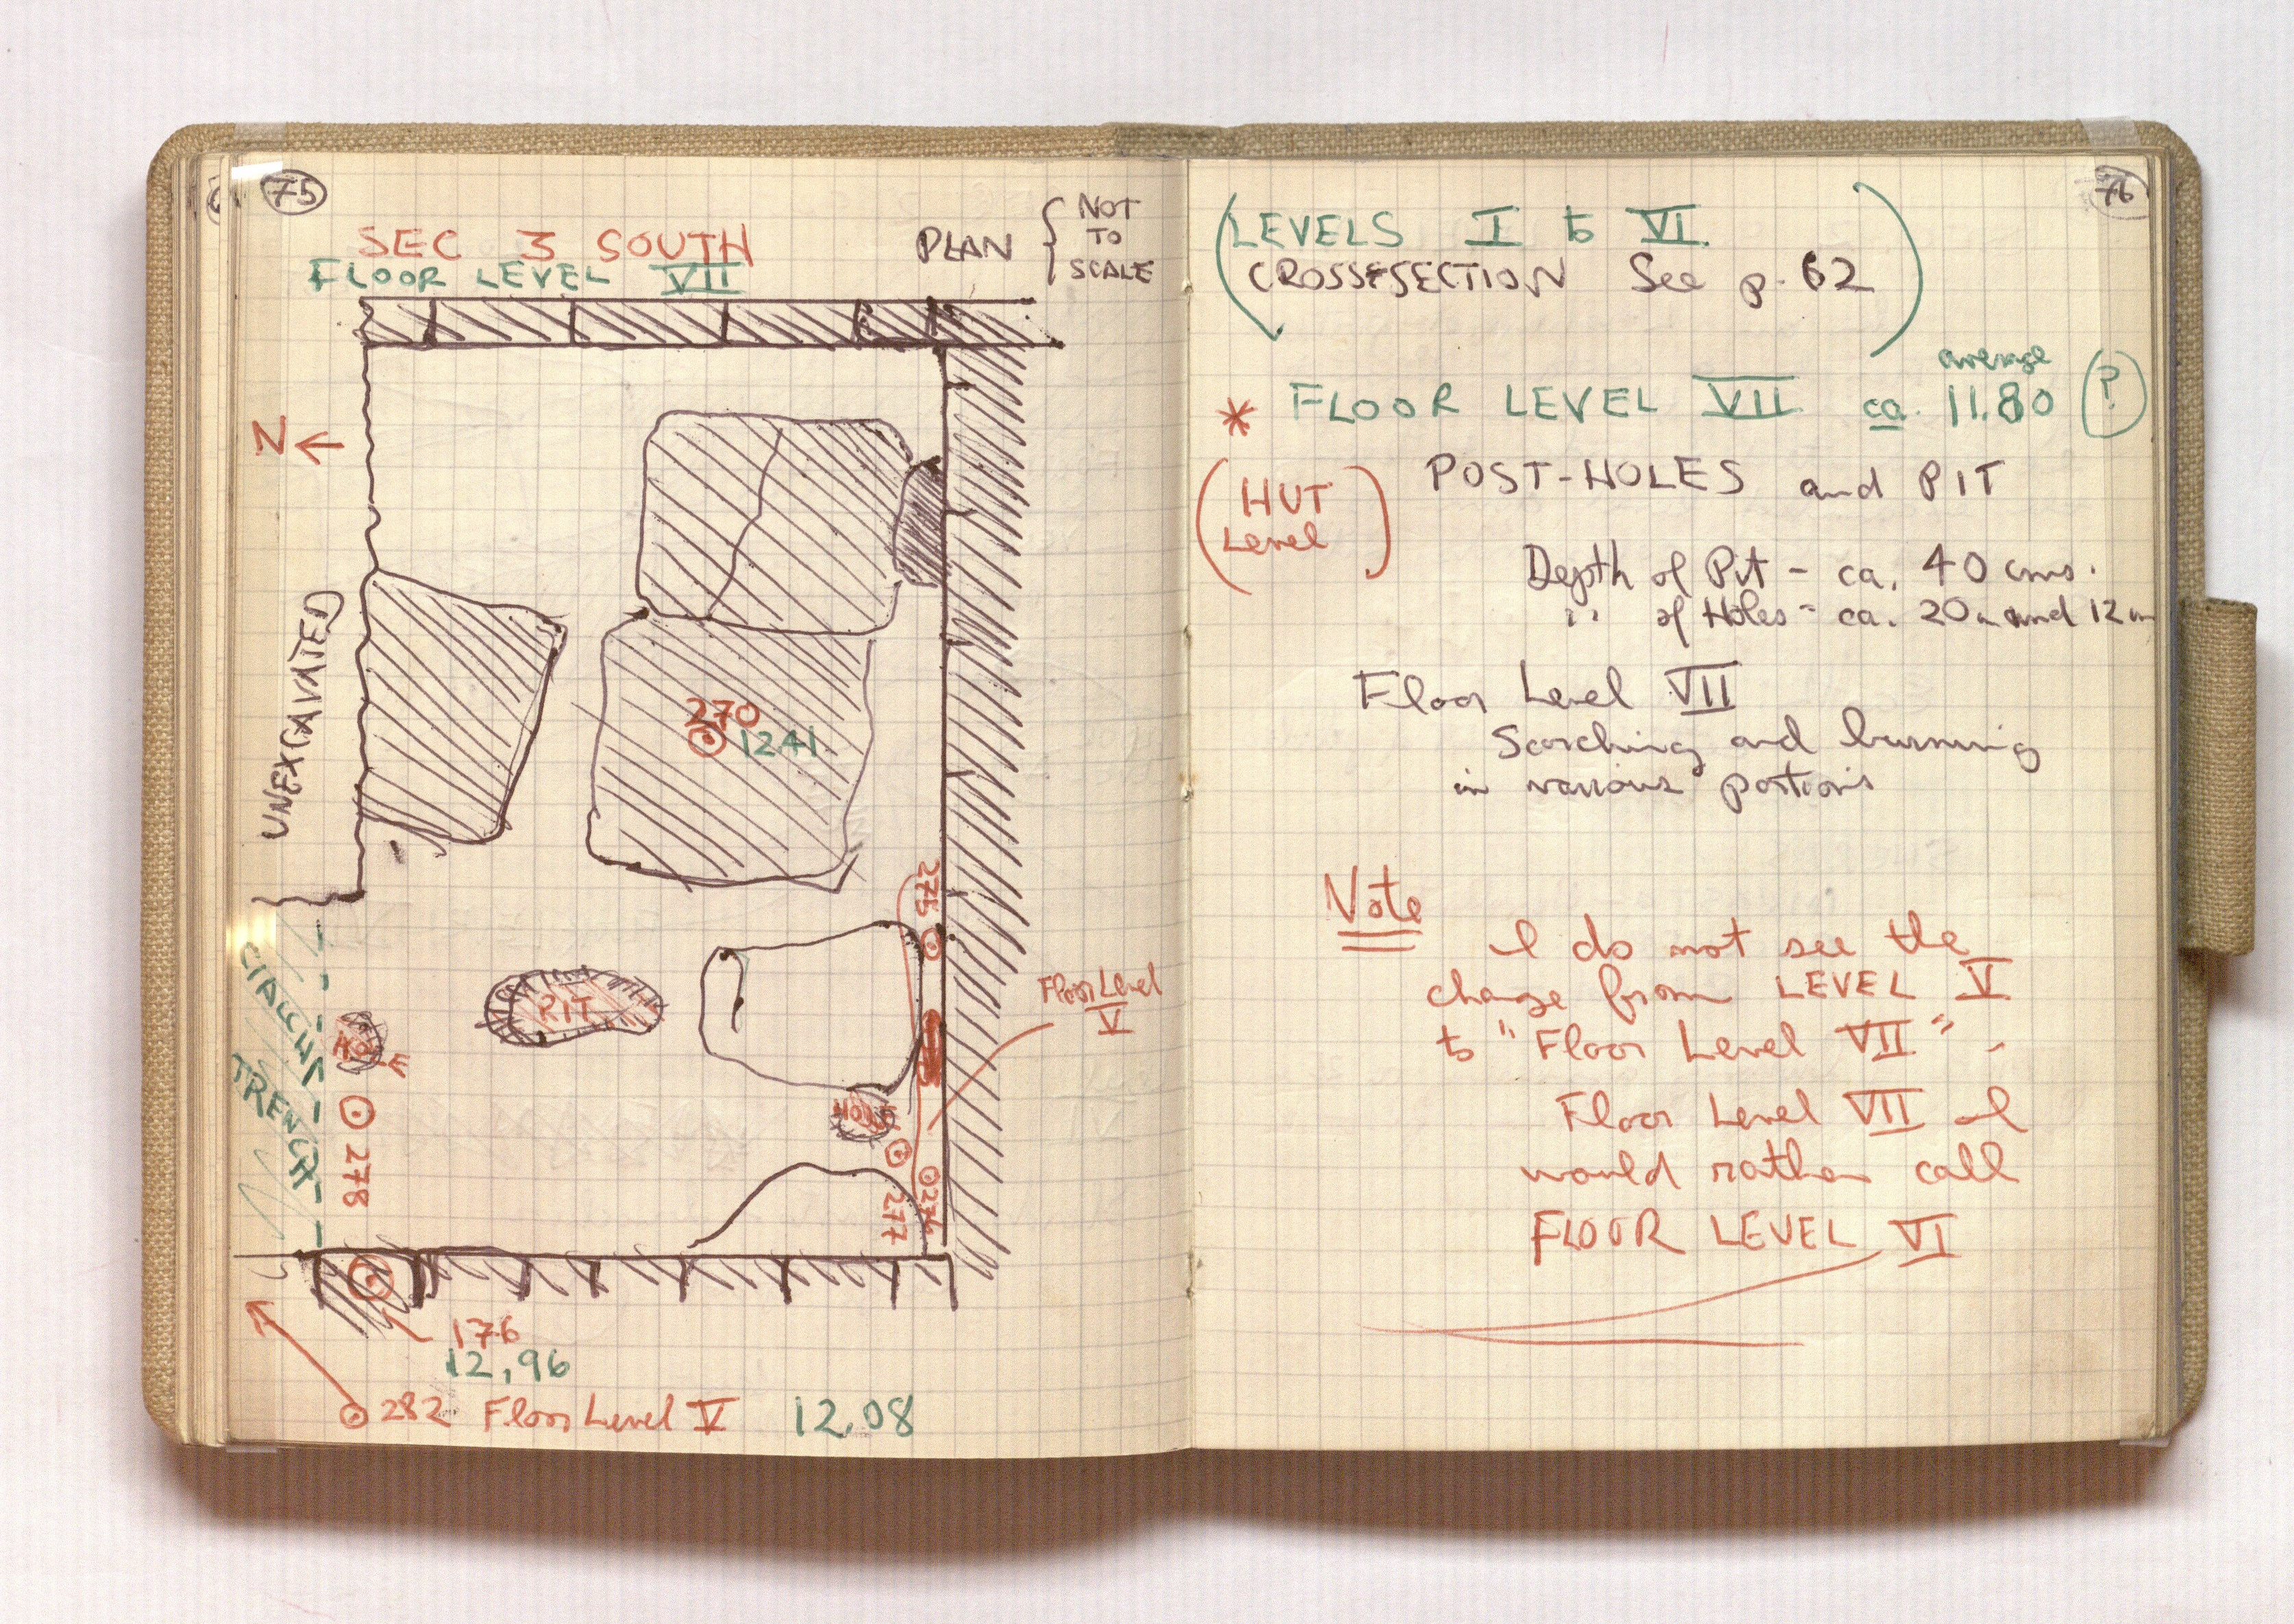 75
SEC 3 SOUTH
FLOOR LEVEL VII
PLAN
NOT
TO
SCALE
N
UNEXCAVATED
270
1241
275
PIT
Floor Level
V
HOLE
HOLE
CIACCHI
TRENCH
278
277
276
176
12,96
282 Floor Level V 12.08
76
LEVELS I to VI
CROSS-SECTION See p. 62
average
* FLOOR LEVEL VII ca. 11.80 ?
(HUT
Level)
POST-HOLES and PIT
Depth of Pit - ca. 40 cms.
" of Holes - ca. 20 and 12
Floor Level VII
Scorching and burning
in various portions
Note
I do not see the
change from LEVEL V
to "Floor Level VII" -
Floor Level VII I
would rather call
FLOOR LEVEL VI